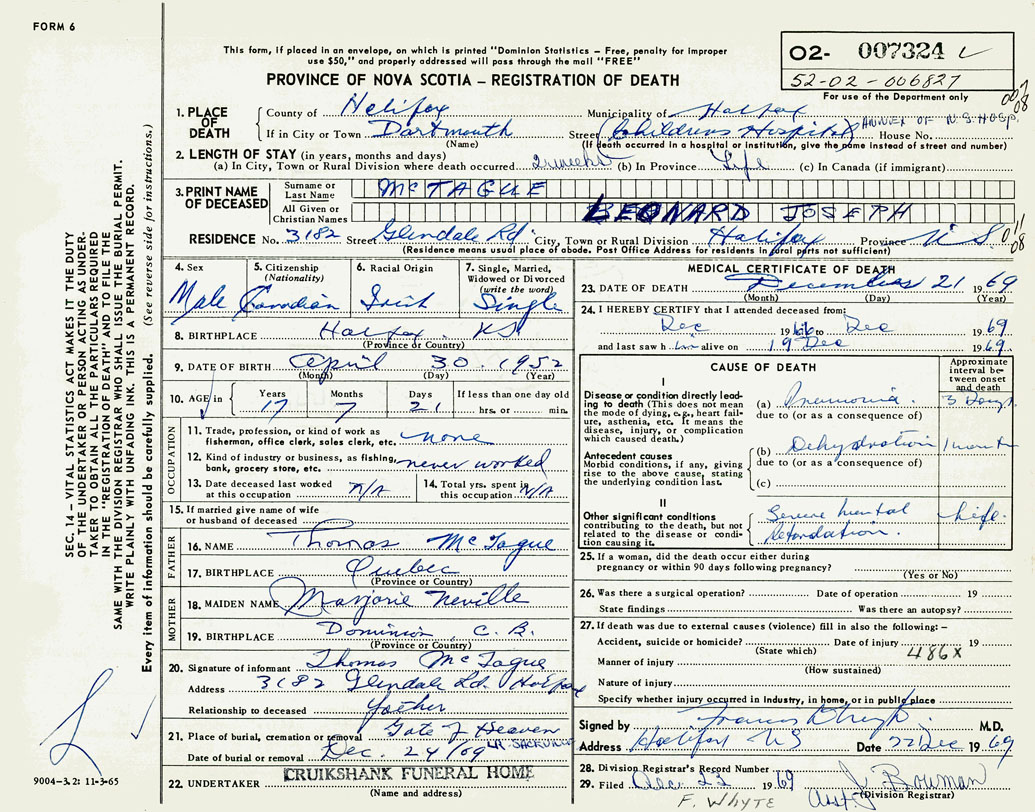 FORM 6
This form, if placed in an envelope, on which is printed "Dominion Statistics – Free, penalty for improper
use $50," and properly addressed will pass through the mail "FREE"
PROVINCE OF NOVA SCOTIA – REGISTRATION OF DEATH
02- 007324
52-02-006827
For use of the Department only
007
08
1. PLACE OF DEATH
County of Halifax Municipality of Halifax
If in City or Town Dartmouth Street (Childrens Hospital) ANNEX OF N.S. HOSP. House No.
(Name) (If death occurred in a hospital or institution, give the name instead of street and number)
2. LENGTH OF STAY (in years, months and days)
(a) In City, Town or Rural Division where death occurred 2 weeks (b) In Province Life (c) In Canada (if immigrant)
3. PRINT NAME OF DECEASED
Surname or Last Name McTAGUE
All Given or Christian Names LEONARD JOSEPH
RESIDENCE No. 3182 Street Glendale Rd. City, Town or Rural Division Halifax Province N S
011
08
(Residence means usual place of abode. Post Office Address for residents in rural parts not sufficient)
4. Sex
Male
5. Citizenship (Nationality)
Canadian
6. Racial Origin
Irish
7. Single, Married, Widowed or Divorced (write the word)
Single
8. BIRTHPLACE Halifax NS
(Province or Country)
9. DATE OF BIRTH April 30 1952
(Month) (Day) (Year)
10. AGE in
Years Months Days If less than one day old
17 7 21 hrs. or min.
OCCUPATION
11. Trade, profession, or kind of work as fisherman, office clerk, sales clerk, etc. none
12. Kind of industry or business, as fishing, bank, grocery store, etc. never worked
13. Date deceased last worked at this occupation N/A
14. Total yrs. spent in this occupation N/A
15. If married give name of wife or husband of deceased
FATHER
16. NAME Thomas McTague
17. BIRTHPLACE Quebec
(Province or Country)
MOTHER
18. MAIDEN NAME Marjorie Neville
19. BIRTHPLACE Dominion, C.B.
(Province or Country)
20. Signature of informant Thomas McTague
Address 3182 Glendale Rd. Halifax
Relationship to deceased Father
21. Place of burial, cremation or removal Gate of Heaven
LR. SACKVILLE
Date of burial or removal Dec. 24/69
22. UNDERTAKER CRUIKSHANK FUNERAL HOME
(Name and address)
MEDICAL CERTIFICATE OF DEATH
23. DATE OF DEATH December 21 1969
(Month) (Day) (Year)
24. I HEREBY CERTIFY that I attended deceased from:
Dec 1966 to Dec 1969
and last saw him alive on 19 Dec 1969
CAUSE OF DEATH
Approximate interval between onset and death
I
Disease or condition directly leading to death (This does not mean the mode of dying, e.g., heart failure, asthenia, etc. It means the disease, injury, or complication which caused death.)
(a) Pneumonia. 3 Days
due to (or as a consequence of)
Antecedent causes
Morbid conditions, if any, giving rise to the above cause, stating the underlying condition last.
(b) Dehydration 1 month
due to (or as a consequence of)
(c)
II
Other significant conditions contributing to the death, but not related to the disease or condition causing it.
Severe mental Retardation. Life.
25. If a woman, did the death occur either during pregnancy or within 90 days following pregnancy?
(Yes or No)
26. Was there a surgical operation? Date of operation 19
State findings Was there an autopsy?
27. If death was due to external causes (violence) fill in also the following:–
Accident, suicide or homicide? Date of injury 19
(State which) 486X
Manner of injury
(How sustained)
Nature of injury
Specify whether injury occurred in industry, in home, or in public place
Signed by Francis M.D.
Address Halifax NS Date 22 Dec 1969
28. Division Registrar's Record Number
29. Filed Dec 23 1969 J. Bowman
(Division Registrar)
F. WHYTE Asst.
SEC. 14 – VITAL STATISTICS ACT MAKES IT THE DUTY
OF THE UNDERTAKER OR PERSON ACTING AS UNDER-
TAKER TO OBTAIN ALL THE PARTICULARS REQUIRED
IN THE "REGISTRATION OF DEATH" AND TO FILE THE
SAME WITH THE DIVISION REGISTRAR WHO SHALL ISSUE THE BURIAL PERMIT.
WRITE PLAINLY WITH UNFADING INK. THIS IS A PERMANENT RECORD.
Every item of information should be carefully supplied. (See reverse side for instructions.)
9004–3.2: 11-3-65